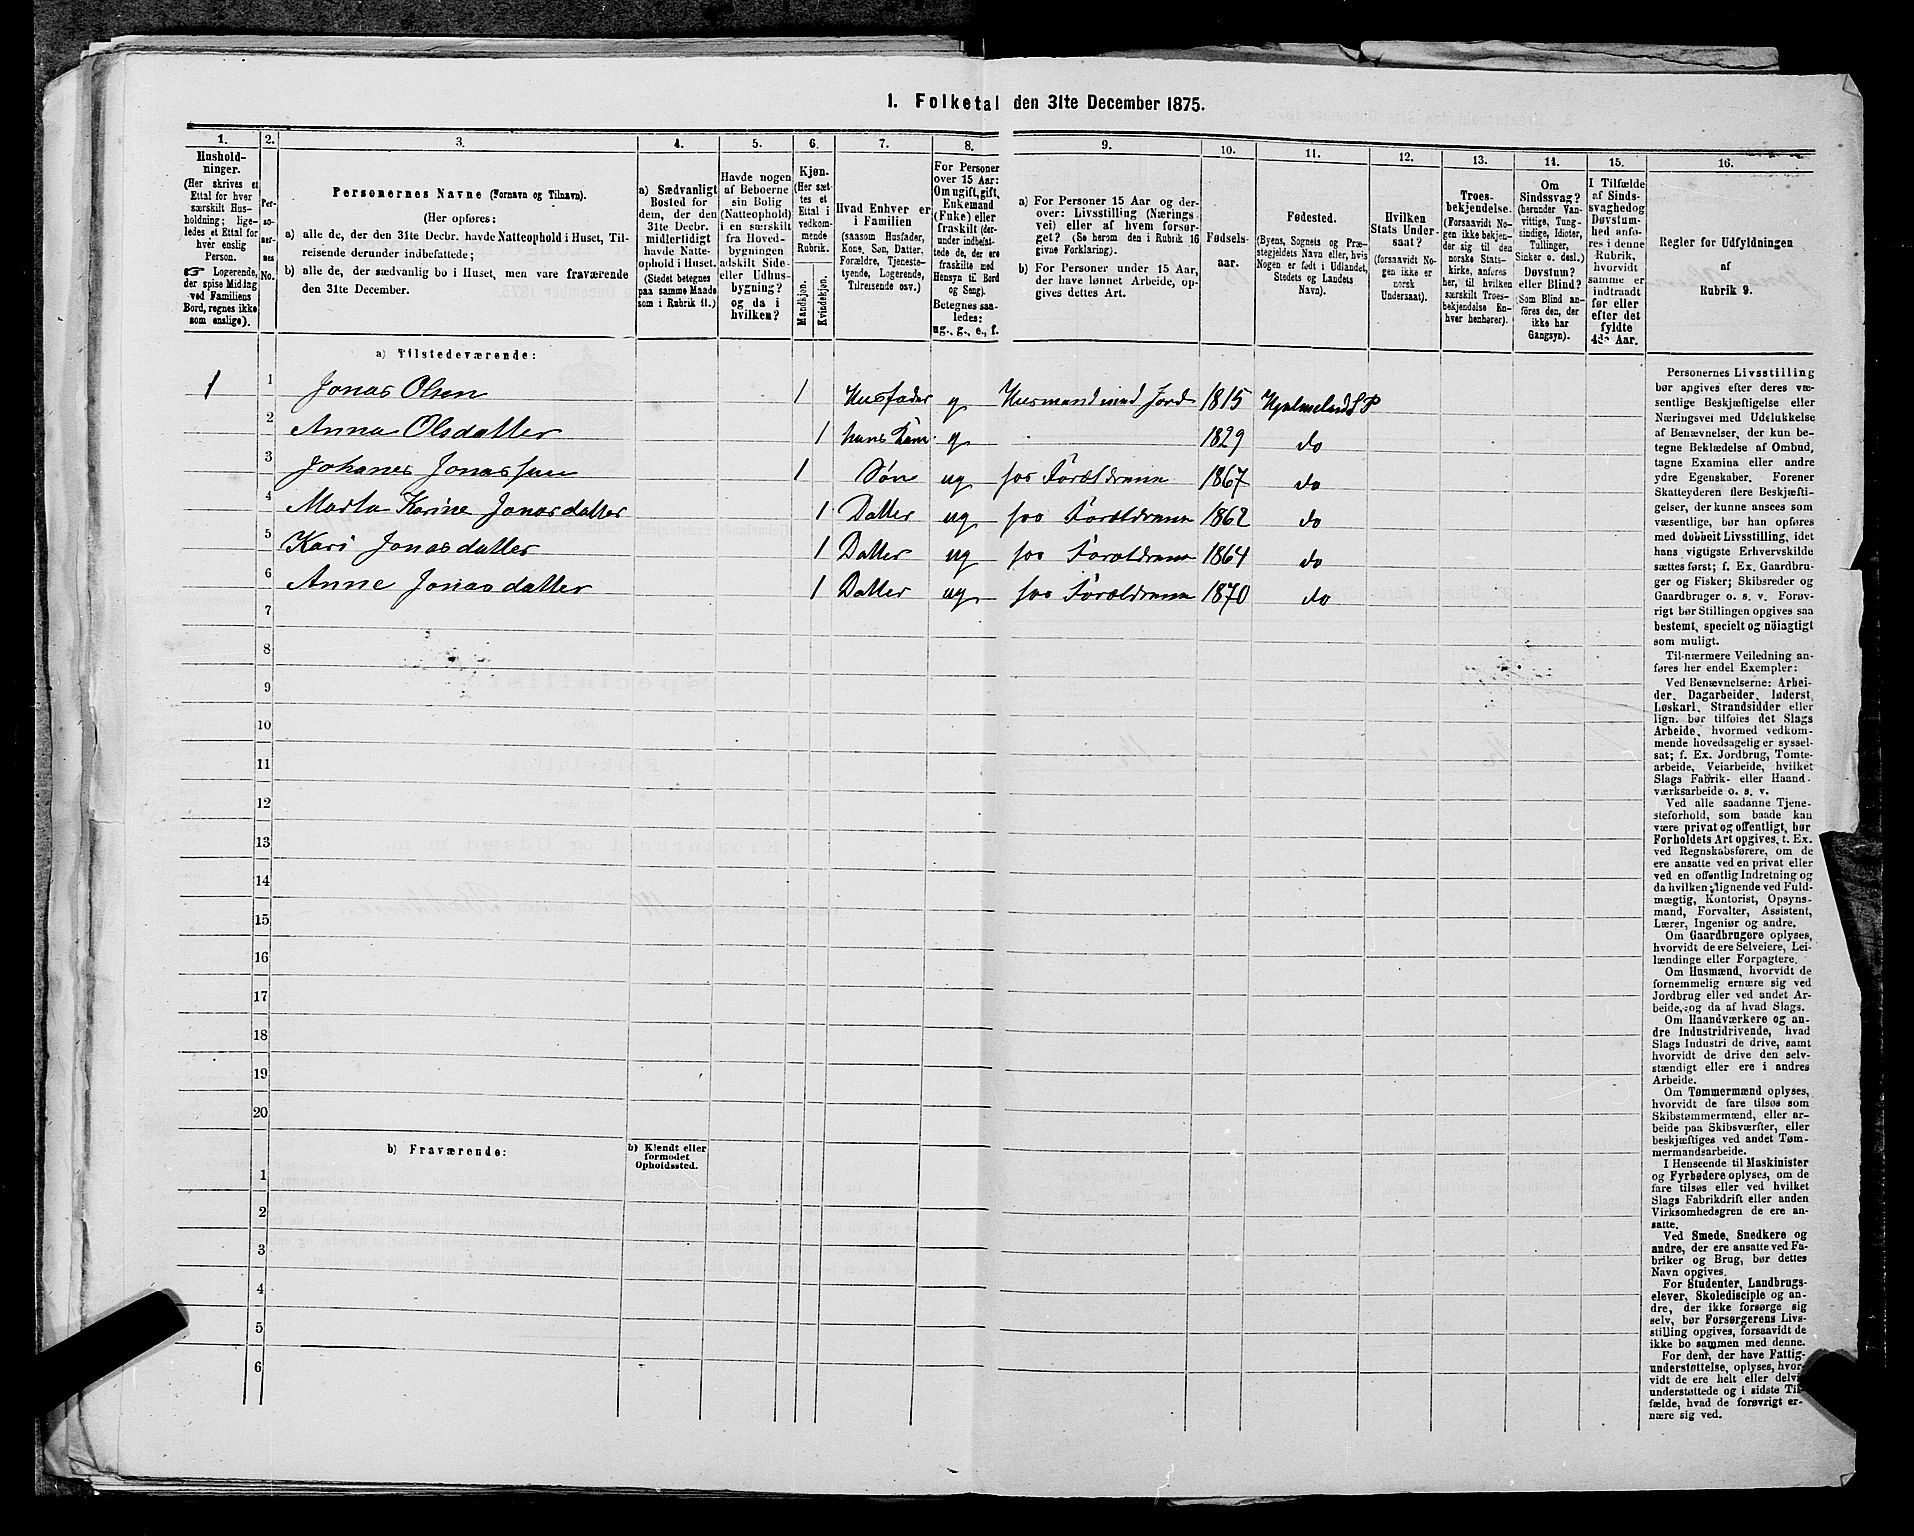 1. Folketal den 31te December 1875.
1.
2.
3.
4.
5.
6.
7.
8.
9.
10.
11.
12.
13.
14.
15.
16.
Hushold-
ninger.
(Her skrives et
Ettal for hver
særskilt Hus-
holdning; lige-
ledes et Ettal for
hver enslig
Person.
☞ Logerende,
der spise Middag
ved Familiens
Bord, regnes ikke
som enslige).
Per-
so-
ner-
nes
No.
Personernes Navne (Fornavn og Tilnavn).
(Her opføres:
a) alle de, der den 31te Decbr. havde Natteophold i Huset, Til-
reisende derunder indbefattede;
b) alle de, der sædvanlig bo i Huset, men vare fraværende
den 31te December.
a) Sædvanligt
Bosted for
dem, der den
31te Decbr.
midlertidigt
havde Natte-
ophold i Huset.
(Stedet betegnes
paa samme Maade
som i Rubrik 11.)
Havde nogen
af Beboerne
sin Bolig
(Natteophold)
i en særskilt
fra Hoved-
bygningen
adskilt Side-
eller Udhus-
bygning?
og da i
hvilken?
Kjøn.
(Her sæt-
tes et
Ettal i
vedkom-
mende
Rubrik.
Mandkjøn.
Kvindekjøn.
Hvad Enhver er
i Familien
(saasom Husfader,
Kone, Søn, Datter,
Forældre, Tjeneste-
tyende, Logerende,
Tilreisende osv.)
For Personer
over 15 Aar:
Om ugift, gift,
Enkemand
(Enke) eller
fraskilt (der-
under indbefat-
tede de, der ere
fraskilte med
Hensyn til Bord
og Seng).
Betegnes saa-
ledes:
ug., g., e., f.
a) For Personer 15 Aar og der-
over: Livsstilling (Nærings
vei) eller af hvem forsør-
get? (Se herom den i Rubrik 16
givne Forklaring).
b) For Personer under 15 Aar,
der have lønnet Arbeide, op-
gives dettes Art.
Fødsels-
aar.
Fødested.
(Byens, Sognets og Præ-
stegjeldets Navn eller, hvis
Nogen er født i Udlandet,
Stedets og Landets
Navn).
Hvilken
Stats Under-
saat?
(forsaavidt No-
gen ikke er
norsk
Undersaat).
Troes-
bekjendelse.
(Forsaavidt No-
gen ikke bekjen-
der sig til den
norske Stats-
kirke, anføres
her, til hvilken
særskilt Troes-
bekjendelse En-
hver henhører).
Om
Sindssvag?
(herunder Van-
vittige, Tung-
sindige, Idioter,
Tullinger,
Sinker o. desl.)
Døvstum?
eller Blind?
(Som Blind an-
føres den, der
ikke har
Gangsyn).
I Tilfælde
af Sinds-
svaghed og
Døvstum-
hed anfø-
res i denne
Rubrik,
hvorvidt
samme er
indtraadt
før eller
efter det
fyldte
4de Aar.
Regler for Udfyldningen
af
Rubrik 9.
a) Tilstedeværende:
1 1 Jonas Olsen 1 Husfader g Husmand med Jord 1815 Hjelmeland S P
2 Anna Olsdatter 1 hans Kone g 1829 do
3 Johanes Jonassen 1 Søn ug hos Forældrene 1867 do
4 Marta Karine Jonasdatter 1 Datter ug hos Forældrene 1862 do
5 Kari Jonasdatter 1 Datter ug hos Forældrene 1864 do
6 Anne Jonasdatter 1 Datter ug hos Forældrene 1870 do
7
8
9
10
11
12
13
14
15
16
17
18
19
20
b) Fraværende:
b) Kjendt eller
formodet
Opholdssted.
1
2
3
4
5
6
Personernes Livsstilling
bør angives efter deres væ-
sentlige Beskjæftigelse eller
Næringsvei med Udelukkelse
af Benævnelser, der kun be-
tegne Beklædelse af Ombud,
tagne Examina eller andre
ydre Egenskaber. Forener
Skatteyderen flere Beskjæfti-
gelser, der kunne ansees som
væsentlige, bør han opføres
med dobbelt Livsstilling, idet
hans vigtigste Erhvervskilde
sættes først; f. Ex. Gaardbru-
ger og Fisker; Skibsreder og
Gaardbruger o. s. v. Forøv-
rigt bør Stillingen opgives saa
bestemt, specielt og nöiagtigt
som muligt.
Til nærmere Veiledning an-
føres her endel Exempler:
Ved Benævnelserne: Arbei-
der, Dagarbeider, Inderst,
Løskarl, Strandsidder eller
lign. bør tilføies det Slags
Arbeide, hvormed vedkom-
mende hovedsagelig er syssel-
sat; f. Ex. Jordbrug, Tomte-
arbeide, Veiarbeide, hvilket
Slags Fabrik- eller Haand-
værksarbeide o. s. v.
Ved alle saadanne Tjene-
steforhold, som baade kan
være privat og offentligt, bør
Forholdets Art opgives, t. Ex.
ved Regnskabsførere, om de
ere ansatte ved en privat eller
ved en offentlig Indretning og
da hvilken; lignende ved Fuld-
mægtig, Kontorist, Opsyns-
mand, Forvalter, Assistent,
Lærer, Ingeniør og andre.
Om Gaardbrugere oplyses,
hvorvidt de ere Selveiere, Lei-
lændinge eller Forpagtere.
Om Husmænd, hvorvidt de
fornemmelig ernære sig ved
Jordbrug eller ved andet Ar-
beide, og da af hvad Slags.
Om Haandværkere og an-
dre Industridrivende, hvad
Slags Industri de drive, samt
hvorvidt de drive den selv-
stændigt eller ere i andres
Arbeide.
Om Tømmermænd oplyses,
hvorvidt de fare tilsøs som
Skibstømmermænd, eller ar-
beide paa Skibsværfter, eller
beskjæftiges ved andet Tøm-
mermandsarbeide.
I Henseende til Maskinister
og Fyrbødere oplyses, om de
fare tilsøs eller ved hvilket
Slags Fabrikdrift eller anden
Virksomhedsgren de ere an-
satte.
Ved Smede, Snedkere og
andre, der ere ansatte ved Fa-
briker og Brug, bør dettes
Navn opgives.
For Studenter, Landbrugs-
elever, Skoledisciple og an-
dre, der ikke forsørge sig
selv, bør Forsørgerens Livs-
stilling opgives, forsaavidt de
ikke bo sammen med denne.
For dem, der have Fattig-
understøttelse, oplyses, hvor-
vidt de ere helt eller delvis
understøttede og i sidste Til-
fælde, hvad de forøvrigt er-
nære sig ved.